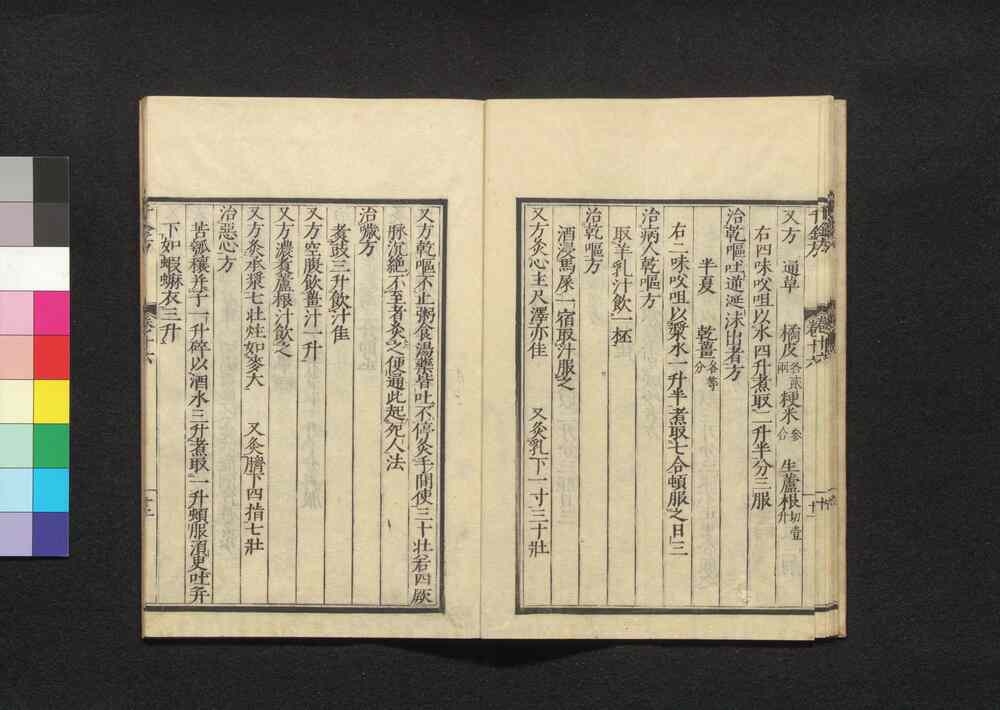 又方　通草　橘皮各貳兩　粳米參合　生蘆根切壹升
右四味㕮咀以水四升煮取二升半分三服
治乾嘔吐逆涎沫出者方
半夏　乾薑各等分
右二味㕮咀以漿水一升半煮取七合頓服之日三
治病人乾嘔方
取羊乳汁飲一杯
治乾嘔方
酒浸馬屎一宿取汁服之
又方灸心主尺澤亦佳　又灸乳下一寸三十壯
又方乾嘔不止粥食湯藥皆吐不停灸手間使三十壯若四厥
脉沉絕不至者灸之便通此起死人法
治噦方
煮豉三升飲汁佳
又方空腹飲薑汁一升
又方濃煮蘆根汁飲之
又方灸承漿七壯炷如麥大　又灸臍下四指七壯
治惡心方
苦瓠穰并子一升碎以酒水三升煮取一升頓服須臾吐并
下如蝦蟆衣三升
千金方　卷十六